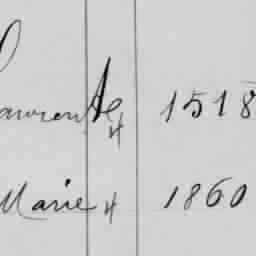 Laurent Ae 4 1518
Marie 4 1860